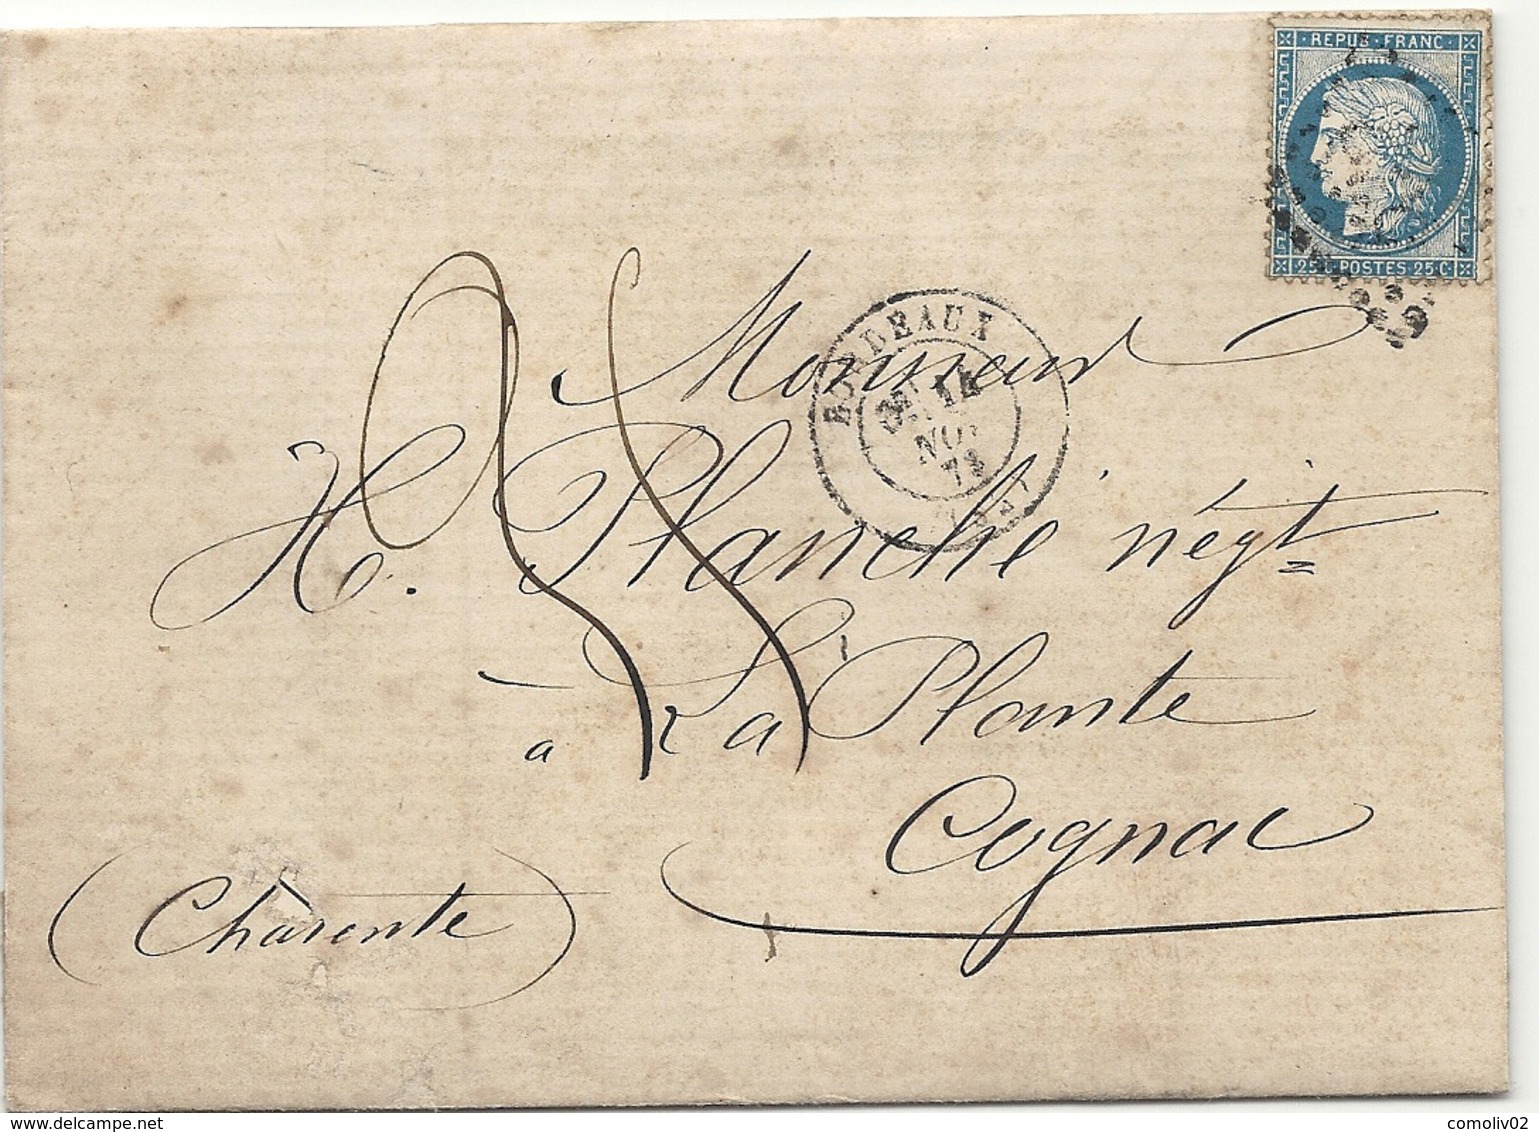 REPUB FRANC
25 C POSTES 25 C
BORDEAUX
14
NOV
73
Monsieur
H. Planche négt
à La Plante
Cognac
(Charente)
comoliv02